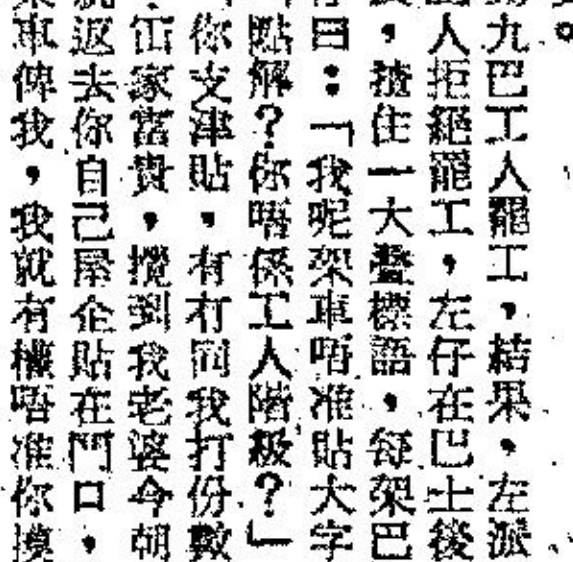 。
九巴工人罷工，結果，左派
人拒絕罷工，左仔在巴士後
，揸住一大疊標語，每架巴
曰：「我呢架車唔准貼大字
點解？你唔係工人階級？」
你支津貼，有冇同我打份數
冚家富貴，攪到我老婆今朝
返去你自己屋企貼在門口，
車俾我，我就有權唔准你摸